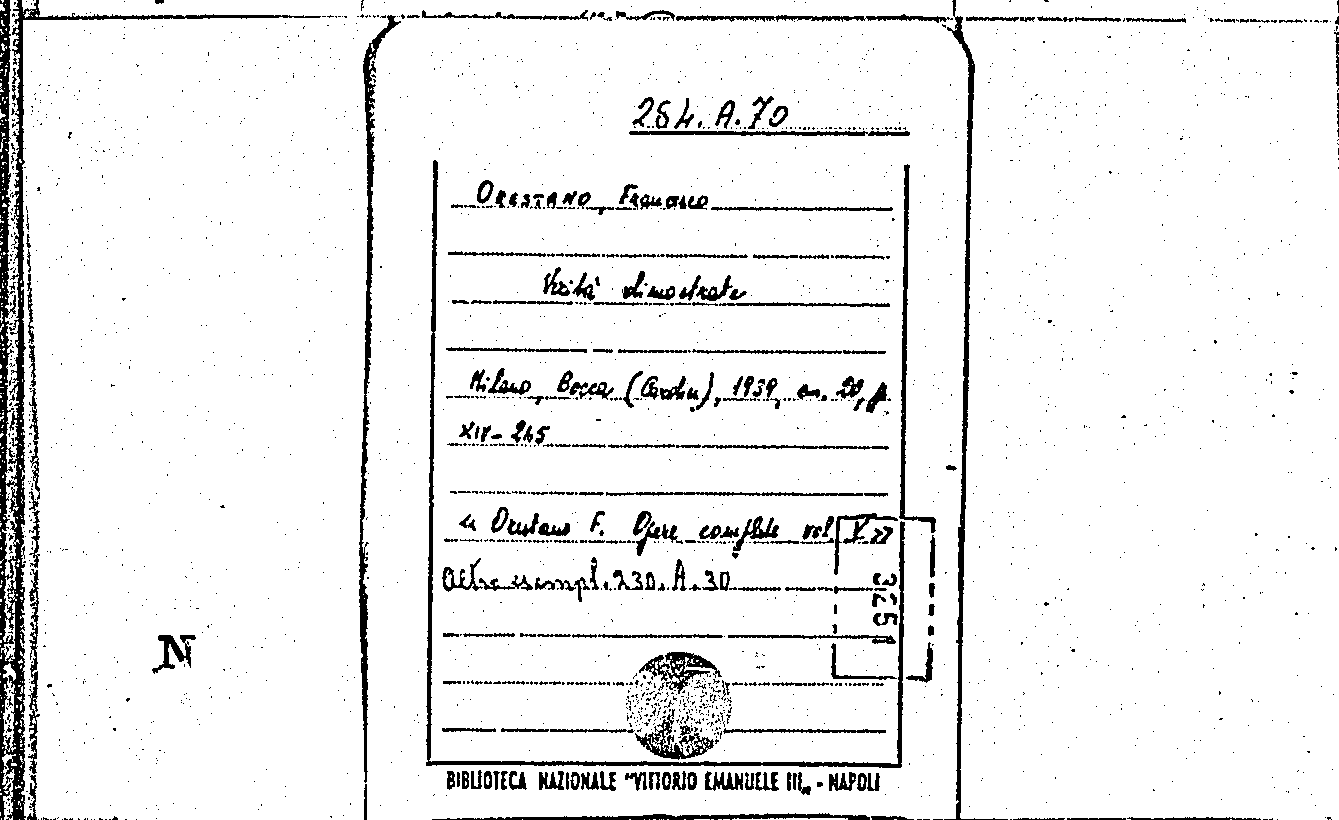 264.A.70
ORESTANO, Francesco
Verità dimostrate
Milano, Bocca (), 1939, cm. 20, p.
XIV-245
« Orestano F. Opere complete vol. V »
altro esempl. 230. A. 30
3251
N
BIBLIOTECA NAZIONALE "VITTORIO EMANUELE III„ - NAPOLI